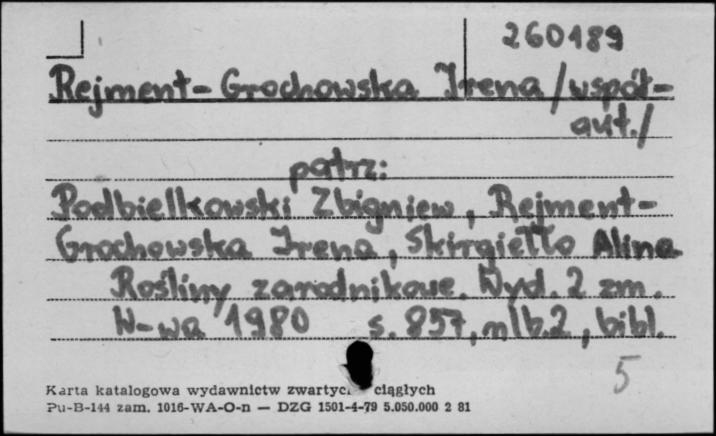 260189
Rejment-Grochowska Irena /współ-
aut./
patrz:
Podbielkowski Zbigniew, Rejment-
Grochowska Irena, Skirgiełło Alina
Rośliny zarodnikowe. Wyd. 2 zm.
W-wa 1980 s. 857, nlb.2, bibl.
5
Karta katalogowa wydawnictw zwartyc ciągłych
Pu-B-144 zam. 1016-WA-O-n — DZG 1501-4-79 5.050.000 2 81